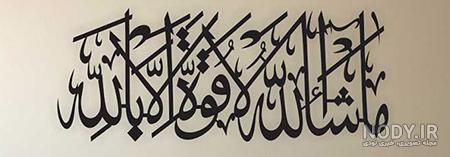 ما شاء الله لا قوة إلا بالله
NODY.IR
مجله تصویری، خبری نودی